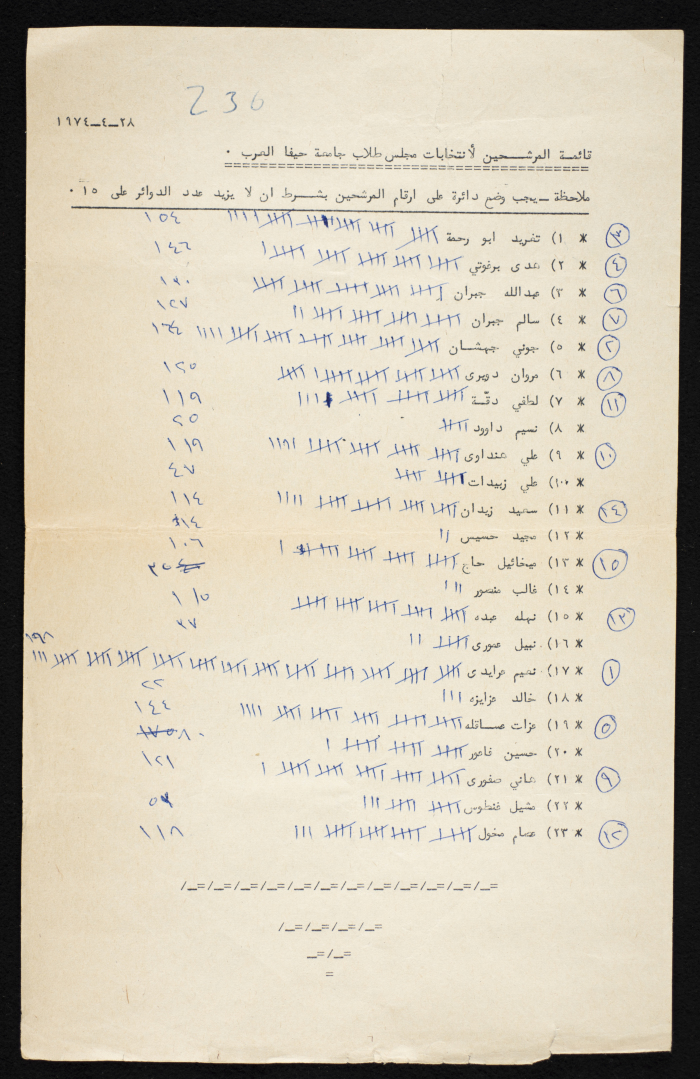 230
٢٨-٤-١٩٧٤
قائمة المرشحين لأنتخابات مجلس طلاب جامعة حيفا العرب ٠
ملاحظة - يجب وضع دائرة على ارقام المرشحين بشرط ان لا يزيد عدد الدوائر على ١٥ ٠
٣ * ١) تغريد ابو رحمة ١٥٤
٤ * ٢) هدى برغوتي ١٤٦
٦ * ٣) عبدالله جبران ١٣٠
٧ * ٤) سالم جبران ١٢٧
٢ * ٥) جوني جهشان ١٦٤
٨ * ٦) مروان دويرى ١٢٥
١١ * ٧) لطفي دقّسة ١١٩
* ٨) نسيم داوود ٢٥
١٠ * ٩) علي هنداوى ١١٩
* ١٠) علي زبيدات ٤٧
١٤ * ١١) سعيد زيدان ١١٤
* ١٢) مجيد حسيس ١٤
١٥ * ١٣) ميخائيل حاج ١٠٦
* ١٤) غالب منصور ٣٥
١٣ * ١٥) نهله عبده ١١٥
* ١٦) نبيل عمورى ٣٧
١ * ١٧) نعيم عرايدى ١٩٨
* ١٨) خالد عزايزه ٢٢
٥ * ١٩) عزات عساقله ١٤٤
* ٢٠) حسين فاعور ٨٠
٩ * ٢١) هاني صفورى ١٢١
* ٢٢) مشيل غنطوس
١٢ * ٢٣) عصام مخول ١١٨
/=_/=_/=_/=_/=_/=_/=_/=_/=_/=_/=_/=
/=_/=_/=_/=
=_/=_
=